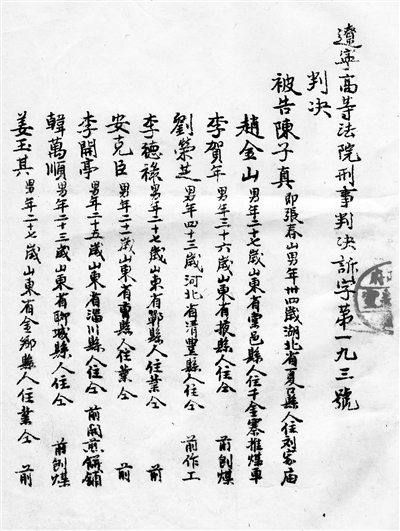 遼寧高等法院刑事判決訴字第一九三號
判决
被告陳子真即張春山男年卅四歲湖北省夏口縣人住刘家庙
趙金山男年二十七歲山東省霑邑縣人住千金寨推煤車
李賀年男年三十六歲山東省掖縣人住仝 前刨煤
劉榮芝男年四十二歲河北省清豐縣人住仝 前作工
李德祿男年二十七歲山東省鄆縣人住業仝 前
安克臣男年二十一歲山東省費縣人住業仝 前
李開亭男年二十五歲山東省淄川縣人住仝 前開煎餅鋪
韓萬順男年二十三歲山東省聊城縣人住仝 前刨煤
姜玉其男年二十七歲山東省金鄉縣人住業仝 前